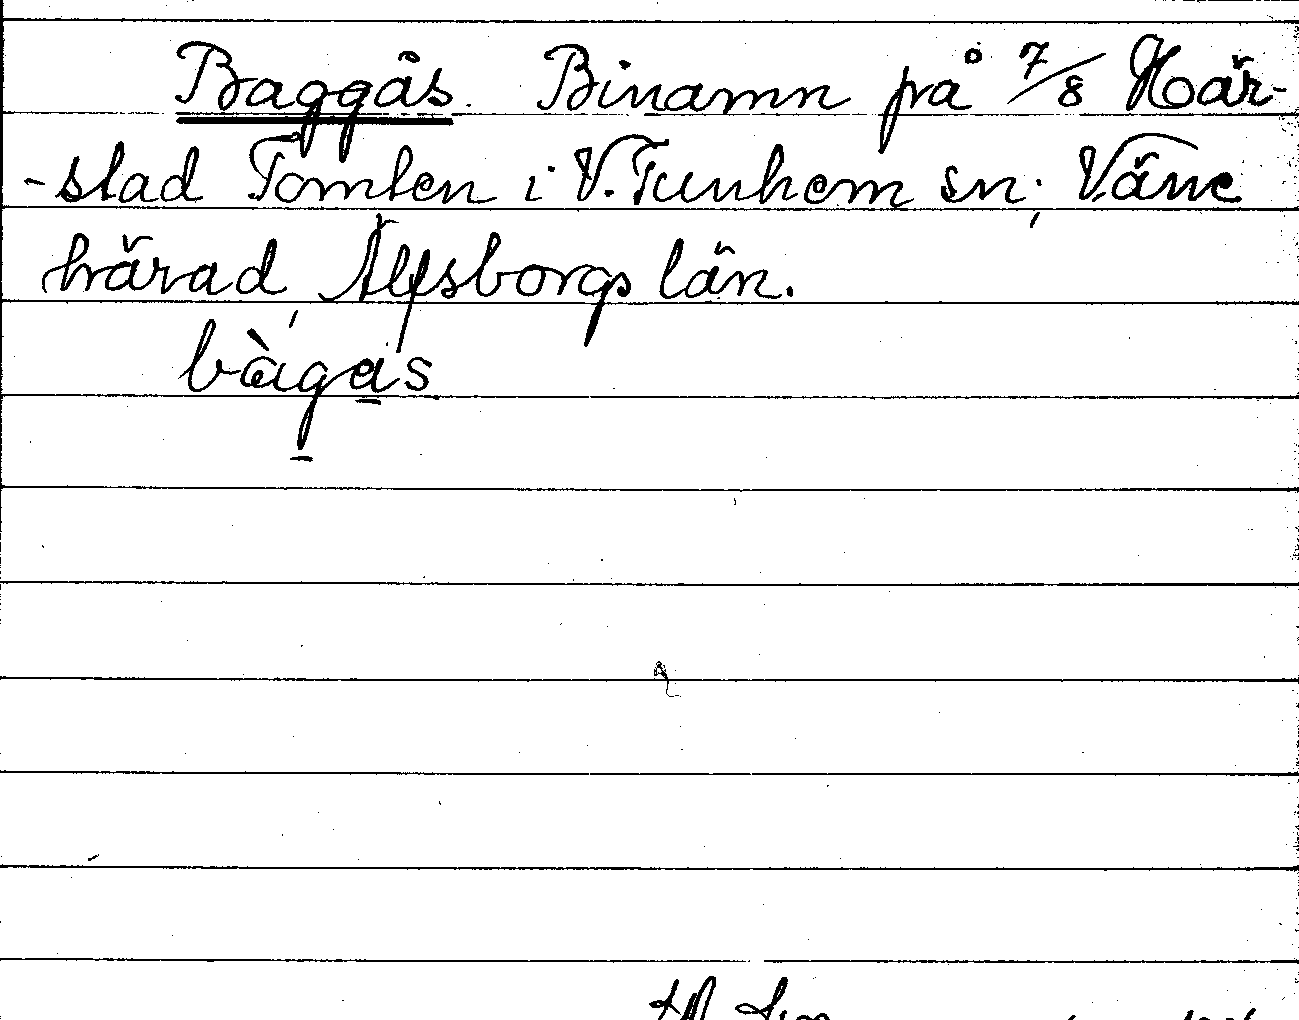 Baggås. Binamn på 7/8 Här-
-stad Tomten i V. Tunhem sn, Väne
härad, Älfsborgs län.
bàgås